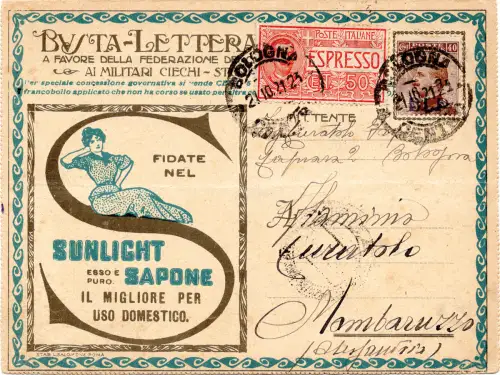 BVSTA-LETTERA
A FAVORE DELLA FEDERAZIONE DE
AI MILITARI CIECHI - ST
Per speciale concessione governativa si vende CE
francobollo applicato che non ha corso se usato per altra
POSTE ITALIANE
ESPRESSO
CENT. 50
BOLOGNA
21.10.21.21
40
BOLOGNA
CENT
MITTENTE
Bologna
FIDATE
NEL
SUNLIGHT
ESSO E
PURO.
SAPONE
IL MIGLIORE PER
USO DOMESTICO.
Flaminio
Curatolo
Mombaruzzo
(Alessandria)